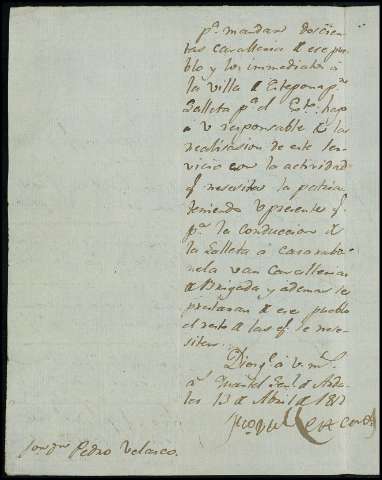 pª. mandar doscien-
tas cavallerias de ese pue-
blo y los immediatos á
la villa de Estepona pʳ.
Galleta pª. el Extº. hago
á v responsable de la
realisasion de este ser-
vicio con la actividad
q necesita la patria
teniendo v presente q
pª. la conduccion de
la Galleta á
van cavallerias
de Brigada y ademas se
de ese pueblo
el resto de las q se nece-
siten.
Dios gᵉ á v mˢ.
aˢ. Quartel Genˡ. de
13 de Abril de
Pedro Velasco.